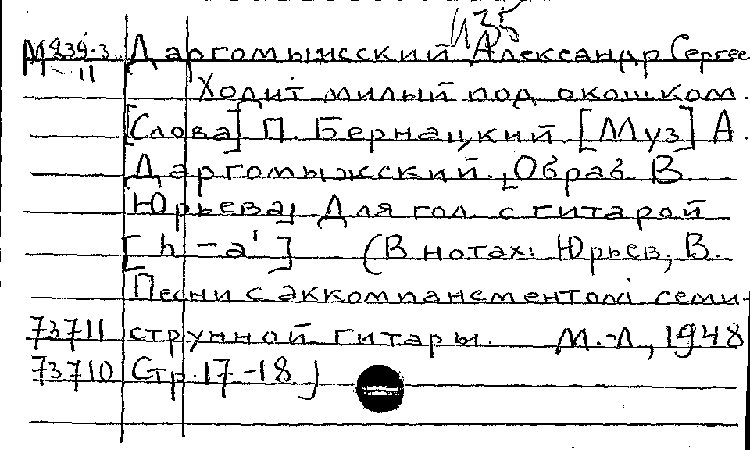 М839-3 Даргомыжский Александр Сергее
11 Ходит милый под окошком.
[Слова] П. Бернацкий. [Муз] А.
Даргомыжский. [Обраб В.
Юрьева] Для гол. с гитарой
[h - a¹] (В нотах: Юрьев, В.
Песни с аккомпанементом семи-
73711 струнной гитары. М.-Л., 1948
73710 Стр. 17-18)